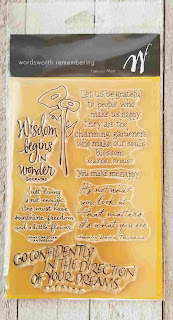 wordsworth remembering
W
Wisdom
begins
in
wonder
SOCRATES
Let us be grateful
to people who
make us happy.
They are the
charming gardeners
who make our souls
Blossom.
MARCEL PROUST
You make me happy.
Just living
is not enough.
One must have
sunshine, freedom
and a little flower.
It's not what
you look at
that matters
it's what you see.
Henry David Thoreau
GO CONFIDENTLY
IN THE DIRECTION
OF YOUR DREAMS